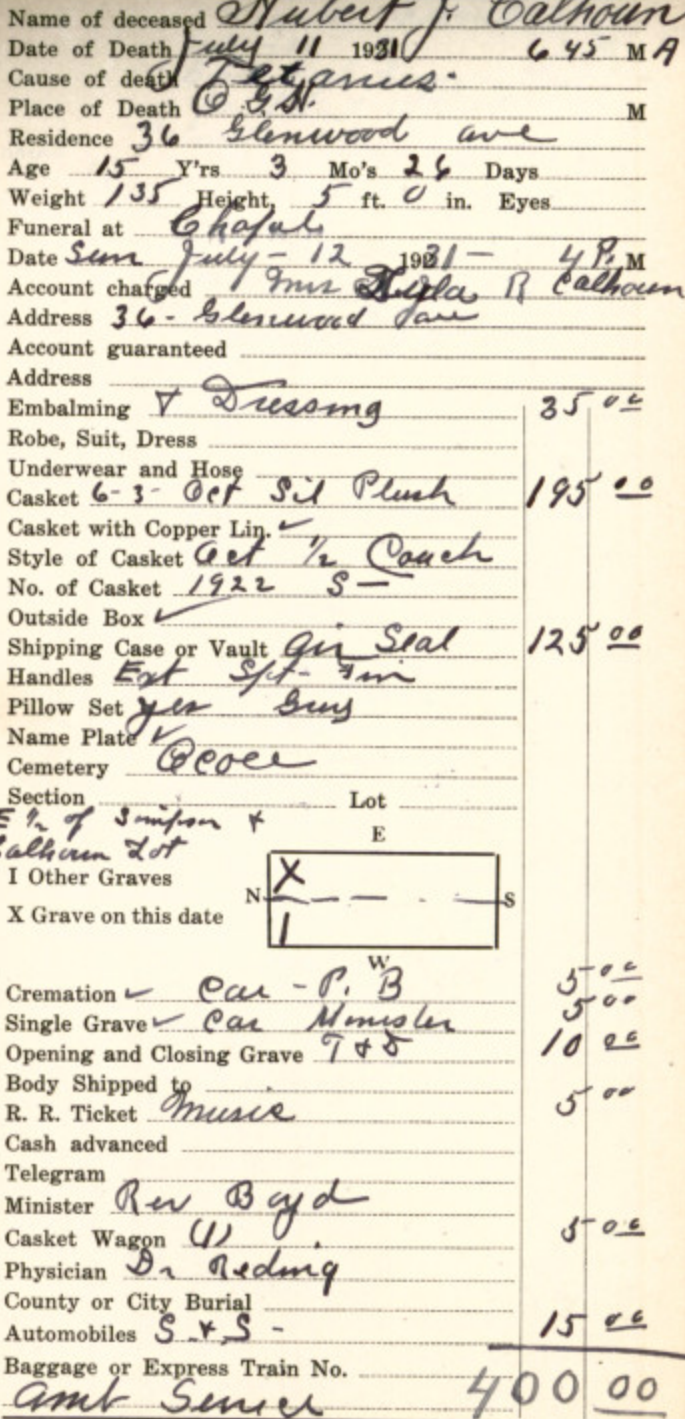 Name of deceased Hubert J. Calhoun
Date of Death July 11 1931 6 45 M A
Cause of death Tetanus.
Place of Death O G H. M
Residence 36 Glenwood ave
Age 15 Y'rs 3 Mo's 26 Days
Weight 135 Height, 5 ft. 0 in. Eyes
Funeral at Chapel
Date Sun July - 12 1931 - 4 P. M
Account charged Mrs R Calhoun
Address 36 - Glenwood ave
Account guaranteed
Address
Embalming & Dressing 35 00
Robe, Suit, Dress
Underwear and Hose
Casket 6-3- Oct Sil Plush 195 00
Casket with Copper Lin. ✓
Style of Casket Oct 1/2 Couch
No. of Casket 1922 S —
Outside Box ✓
Shipping Case or Vault Air Seal 125 00
Handles Ext
Pillow Set yes
Name Plate ✓
Cemetery Ocoee
Section Lot
E 1/2 of Simpson &
Calhoun Lot
E
I Other Graves
X
N S
X Grave on this date
I
W
Cremation ✓ Car - P. B 5 00
Single Grave ✓ Car Minister 5 00
Opening and Closing Grave 10 00
Body Shipped to
R. R. Ticket Music 5 00
Cash advanced
Telegram
Minister Rev Boyd
Casket Wagon (1) 5 00
Physician Dr
County or City Burial
Automobiles S & S - 15 00
Baggage or Express Train No.
Amt Service 400 00